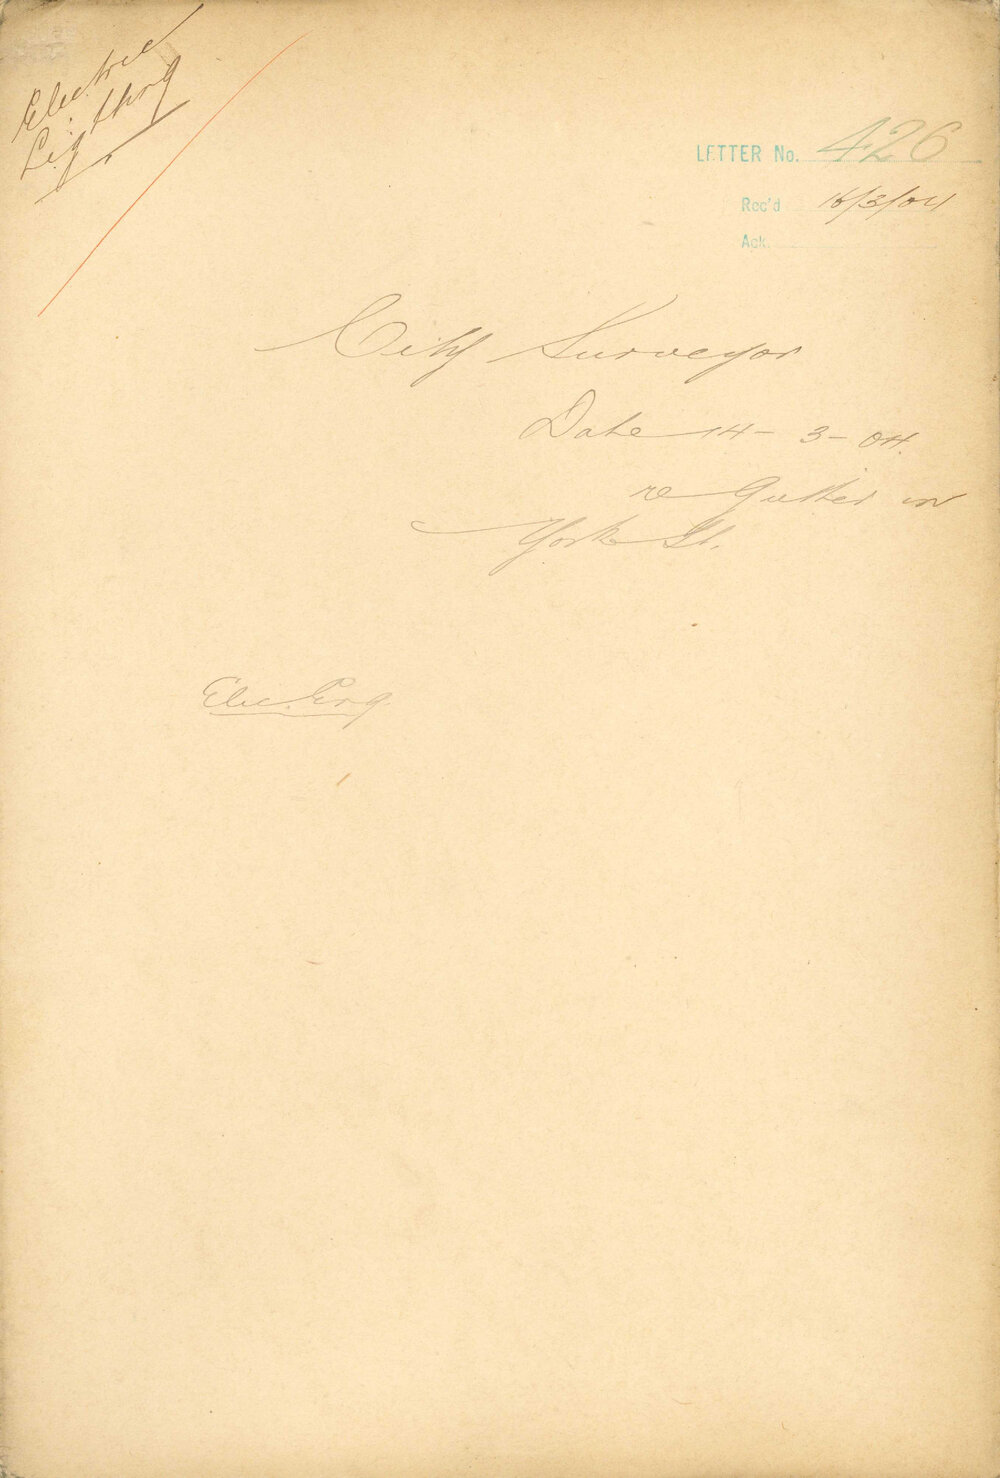 Electric
Lighting
LETTER No. 426
Rec'd 16/3/04
Ack.
City Surveyor
Date 14-3-04.
re Gutter in
York St.
Elec. Eng.